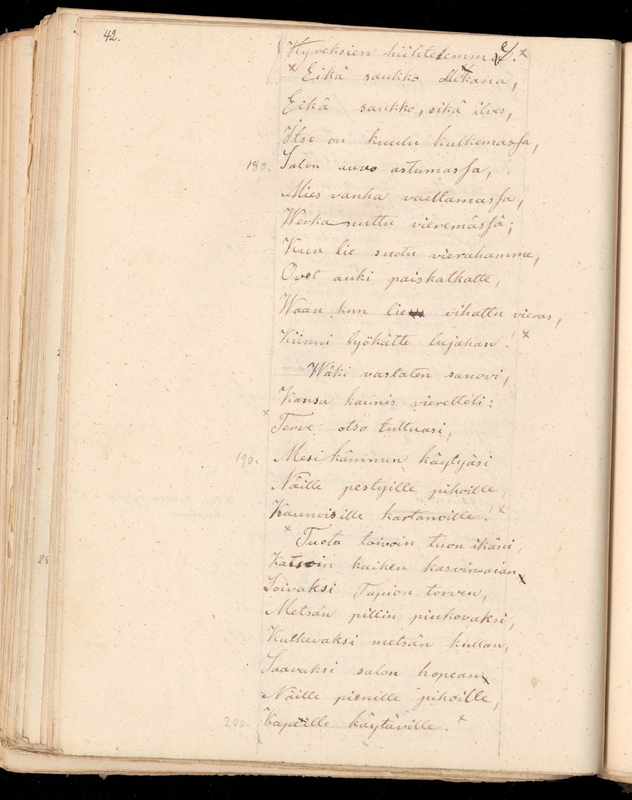 42.
Hyveksien hiihtelemme.
Eikä saukko ollekana,
Eikä saukko, eikä ilves,
Itse on kuulu kulkemassa,
180. Salon auvo astumassa,
Mies vanha vaeltamassa,
Werkanuttu vieremässä;
Kun lie suotu vierahamme,
Ovet auki paiskatkatte,
Waan kun lie vihattu vieras,
Kiinni lyökätte lujahan!
Wäki vastaten sanovi,
Kansa kaunis vieretteli:
Terve otso tultuasi,
190. Mesikämmen käytyäsi
Näille pestyille pihoille,
Kaunoisille kartanoille!
Tuota toivoin tuon ikäni,
Katsoin kaiken kasvinaian
Soivaksi Tapion torven,
Metsän pillin piukovaksi,
Kulkevaksi metsän kullan,
Saavaksi salon hopean
Näille pienille pihoille,
200. Kapeille käytäville.
25